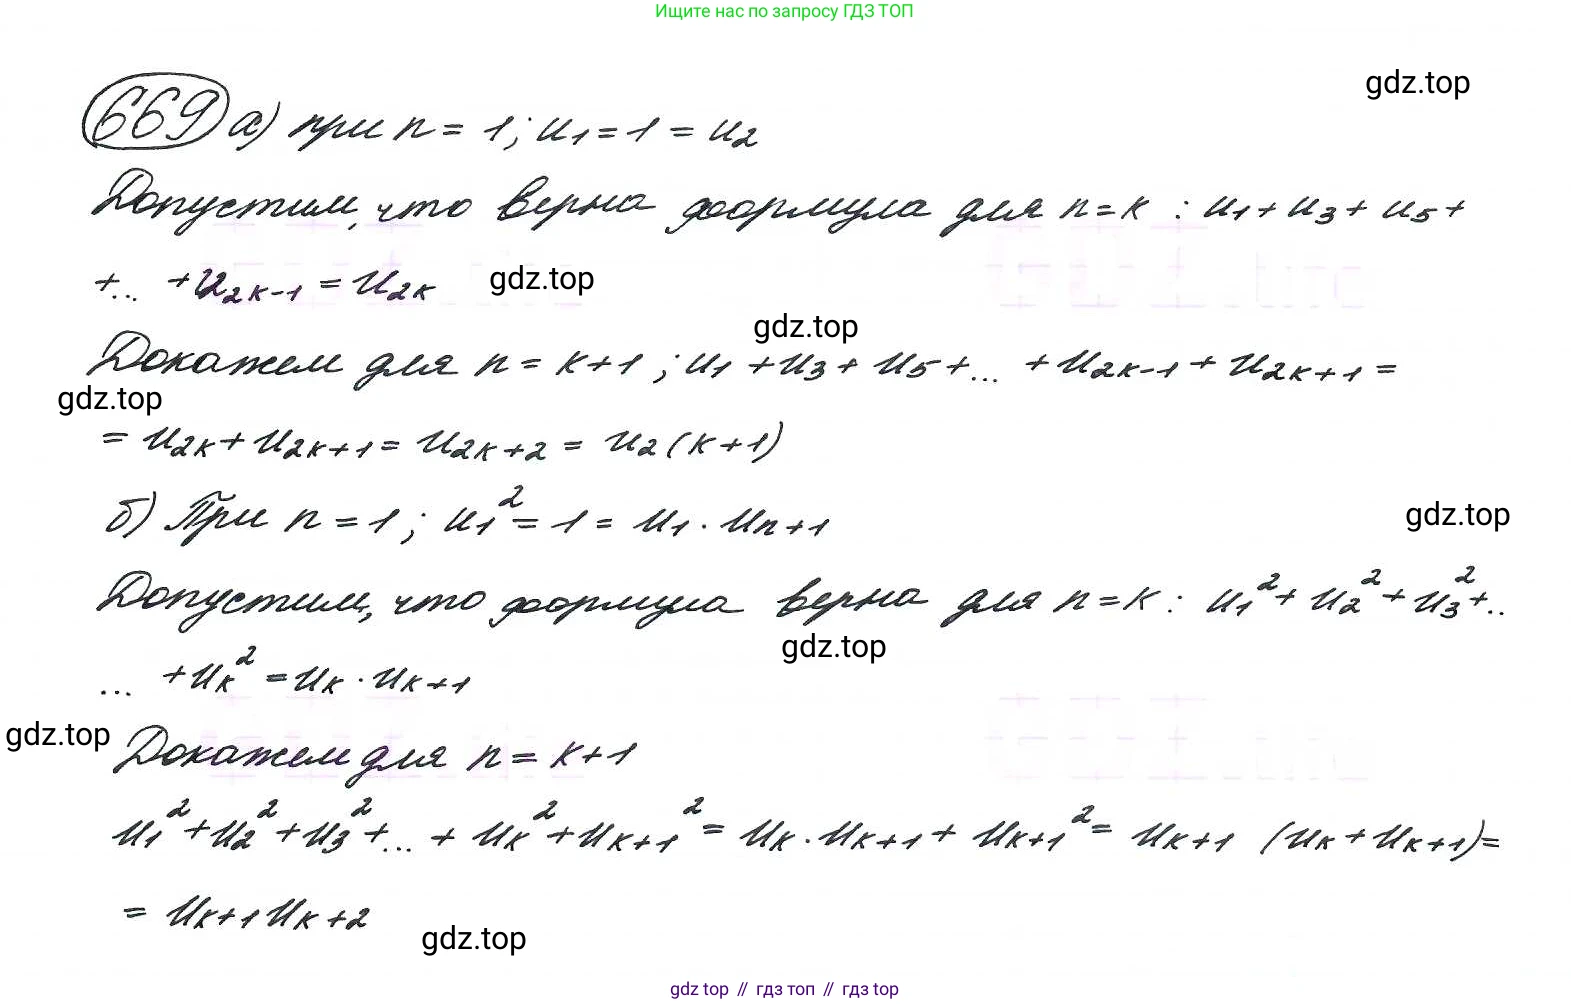 Ищите нас по запросу ГДЗ ТОП
gdz.top
669 а) при n = 1; u₁ = 1 = u₂
Допустим, что верна формула для n = k : u₁ + u₃ + u₅ +
+... + u₂ₖ₋₁ = u₂ₖ
gdz.top
gdz.top
Докажем для n = k+1 ; u₁ + u₃ + u₅ + ... + u₂ₖ₋₁ + u₂ₖ₊₁ =
gdz.top
= u₂ₖ + u₂ₖ₊₁ = u₂ₖ₊₂ = u₂(ₖ₊₁)
б) При n = 1 ; u₁² = 1 = u₁ · uₙ₊₁
gdz.top
Допустим, что формула верна для n = k : u₁² + u₂² + u₃² + ..
gdz.top
... + uₖ² = uₖ · uₖ₊₁
gdz.top
Докажем для n = k+1
u₁² + u₂² + u₃² + ... + uₖ² + uₖ₊₁² = uₖ · uₖ₊₁ + uₖ₊₁² = uₖ₊₁ (uₖ + uₖ₊₁) =
= uₖ₊₁ uₖ₊₂
gdz.top
gdz top // гдз топ // gdz top